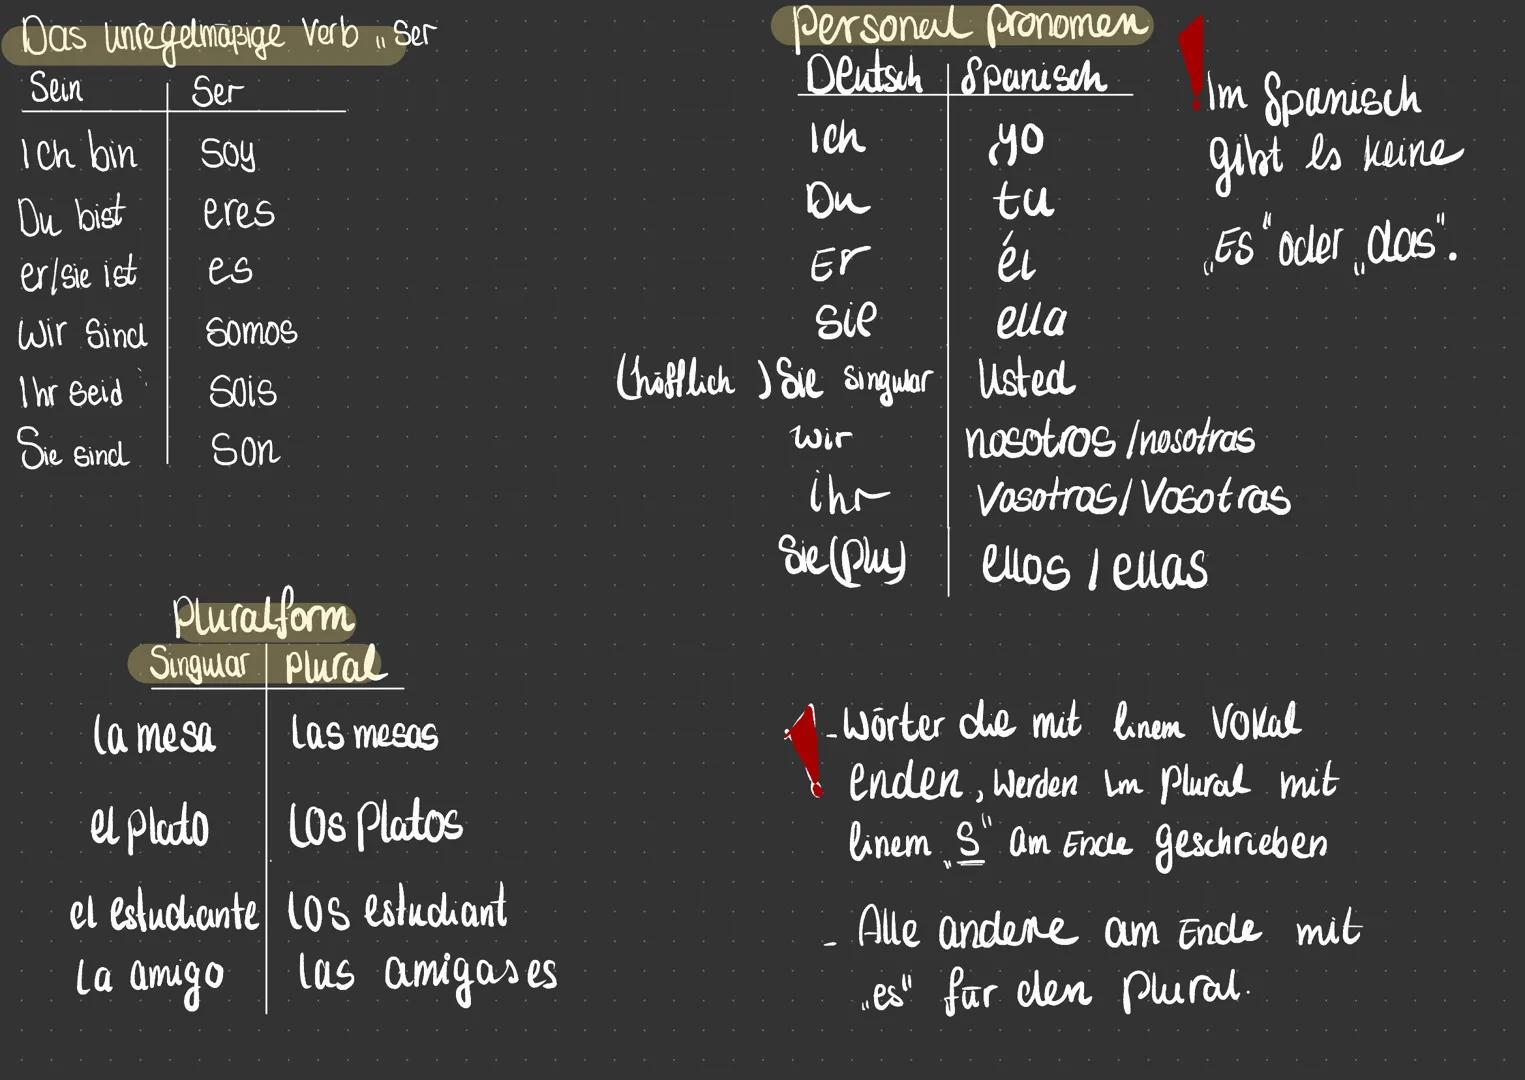 Das unregelmäßige Verb „Ser
Sein Ser
Ich bin soy
Du bist eres
er/sie ist es
Wir sind somos
Ihr seid sois
Sie sind son
Pluralform
Singular Plural
la mesa las mesas
el plato los Platos
el estudiante los estudiant
La amigo las amigases
Personal pronomen
Deutsch Spanisch
Ich yo
Du tu
Er él
Sie ella
(höfflich) Sie singular Usted
wir nosotros / nosotras
ihr Vosotros / Vosotras
Sie (Plu) ellos / ellas
Im Spanisch
gibt es keine
„Es“ oder „das“.
- Wörter die mit einem Vokal
enden, werden im Plural mit
einem „S“ am Ende geschrieben
- Alle andere am Ende mit
„es“ für den Plural.